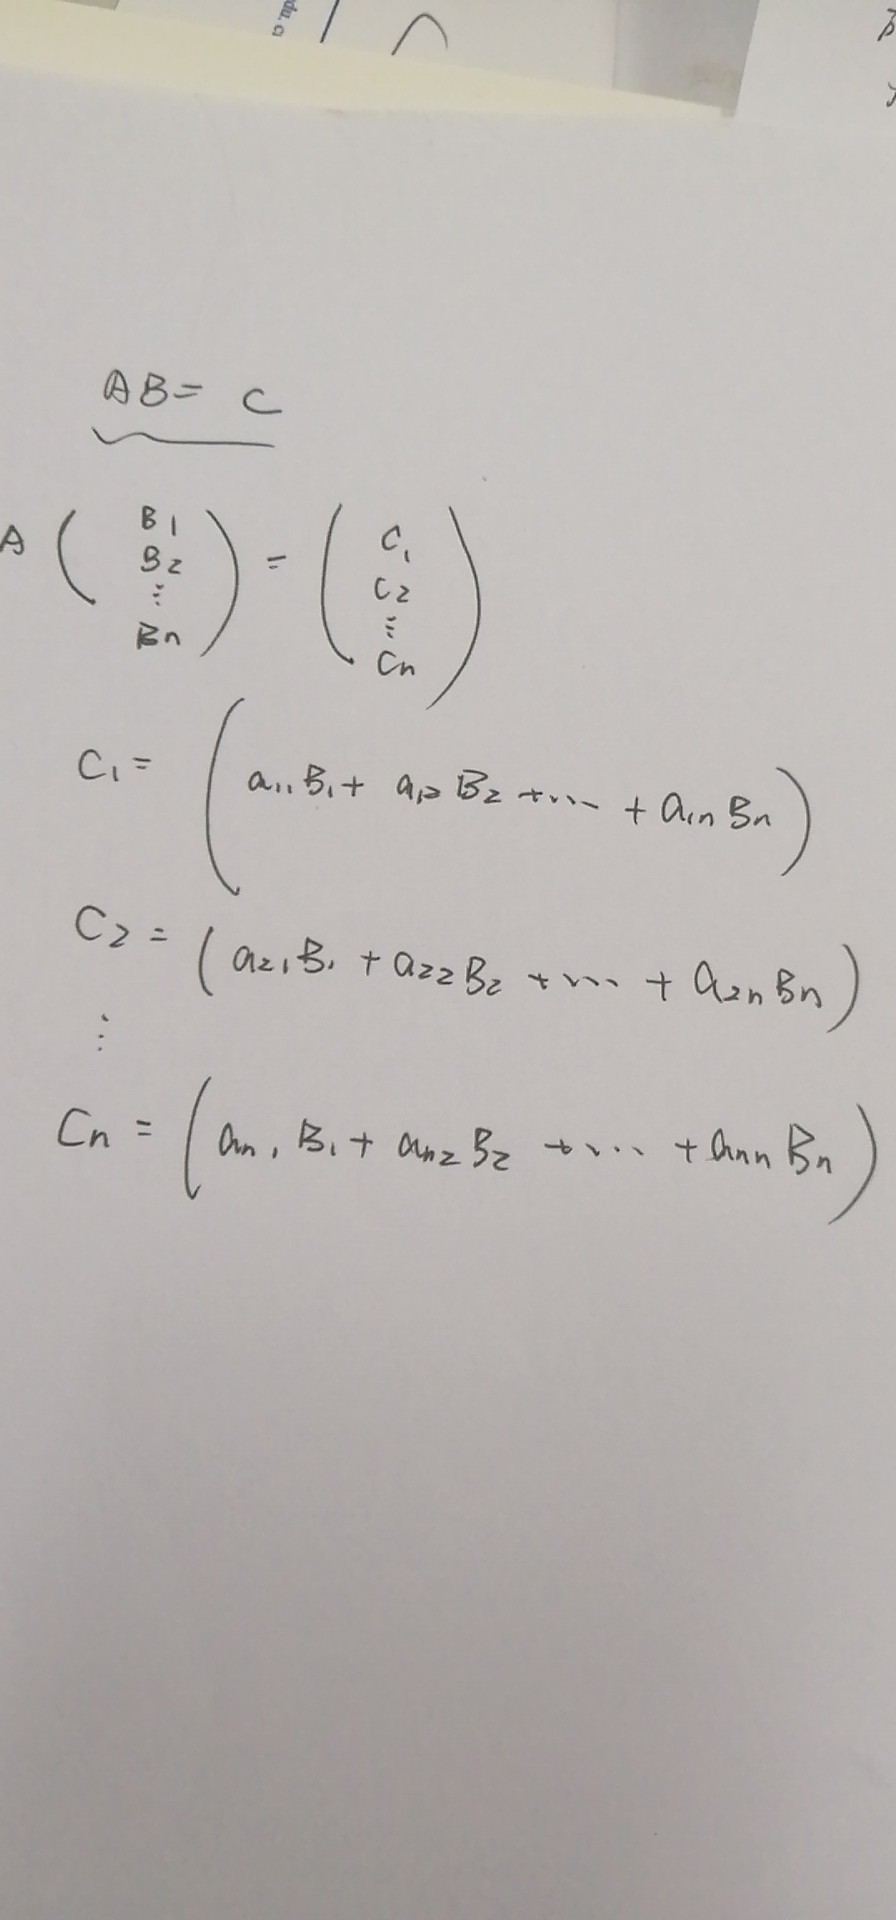 du. c
AB = C
A ( B1 B2 ⋮ Bn ) = ( C1 C2 ⋮ Cn )
C1 = ( a11 B1 + a12 B2 + ... + a1n Bn )
C2 = ( a21 B1 + a22 B2 + ... + a2n Bn )
⋮
Cn = ( an1 B1 + an2 B2 + ... + ann Bn )